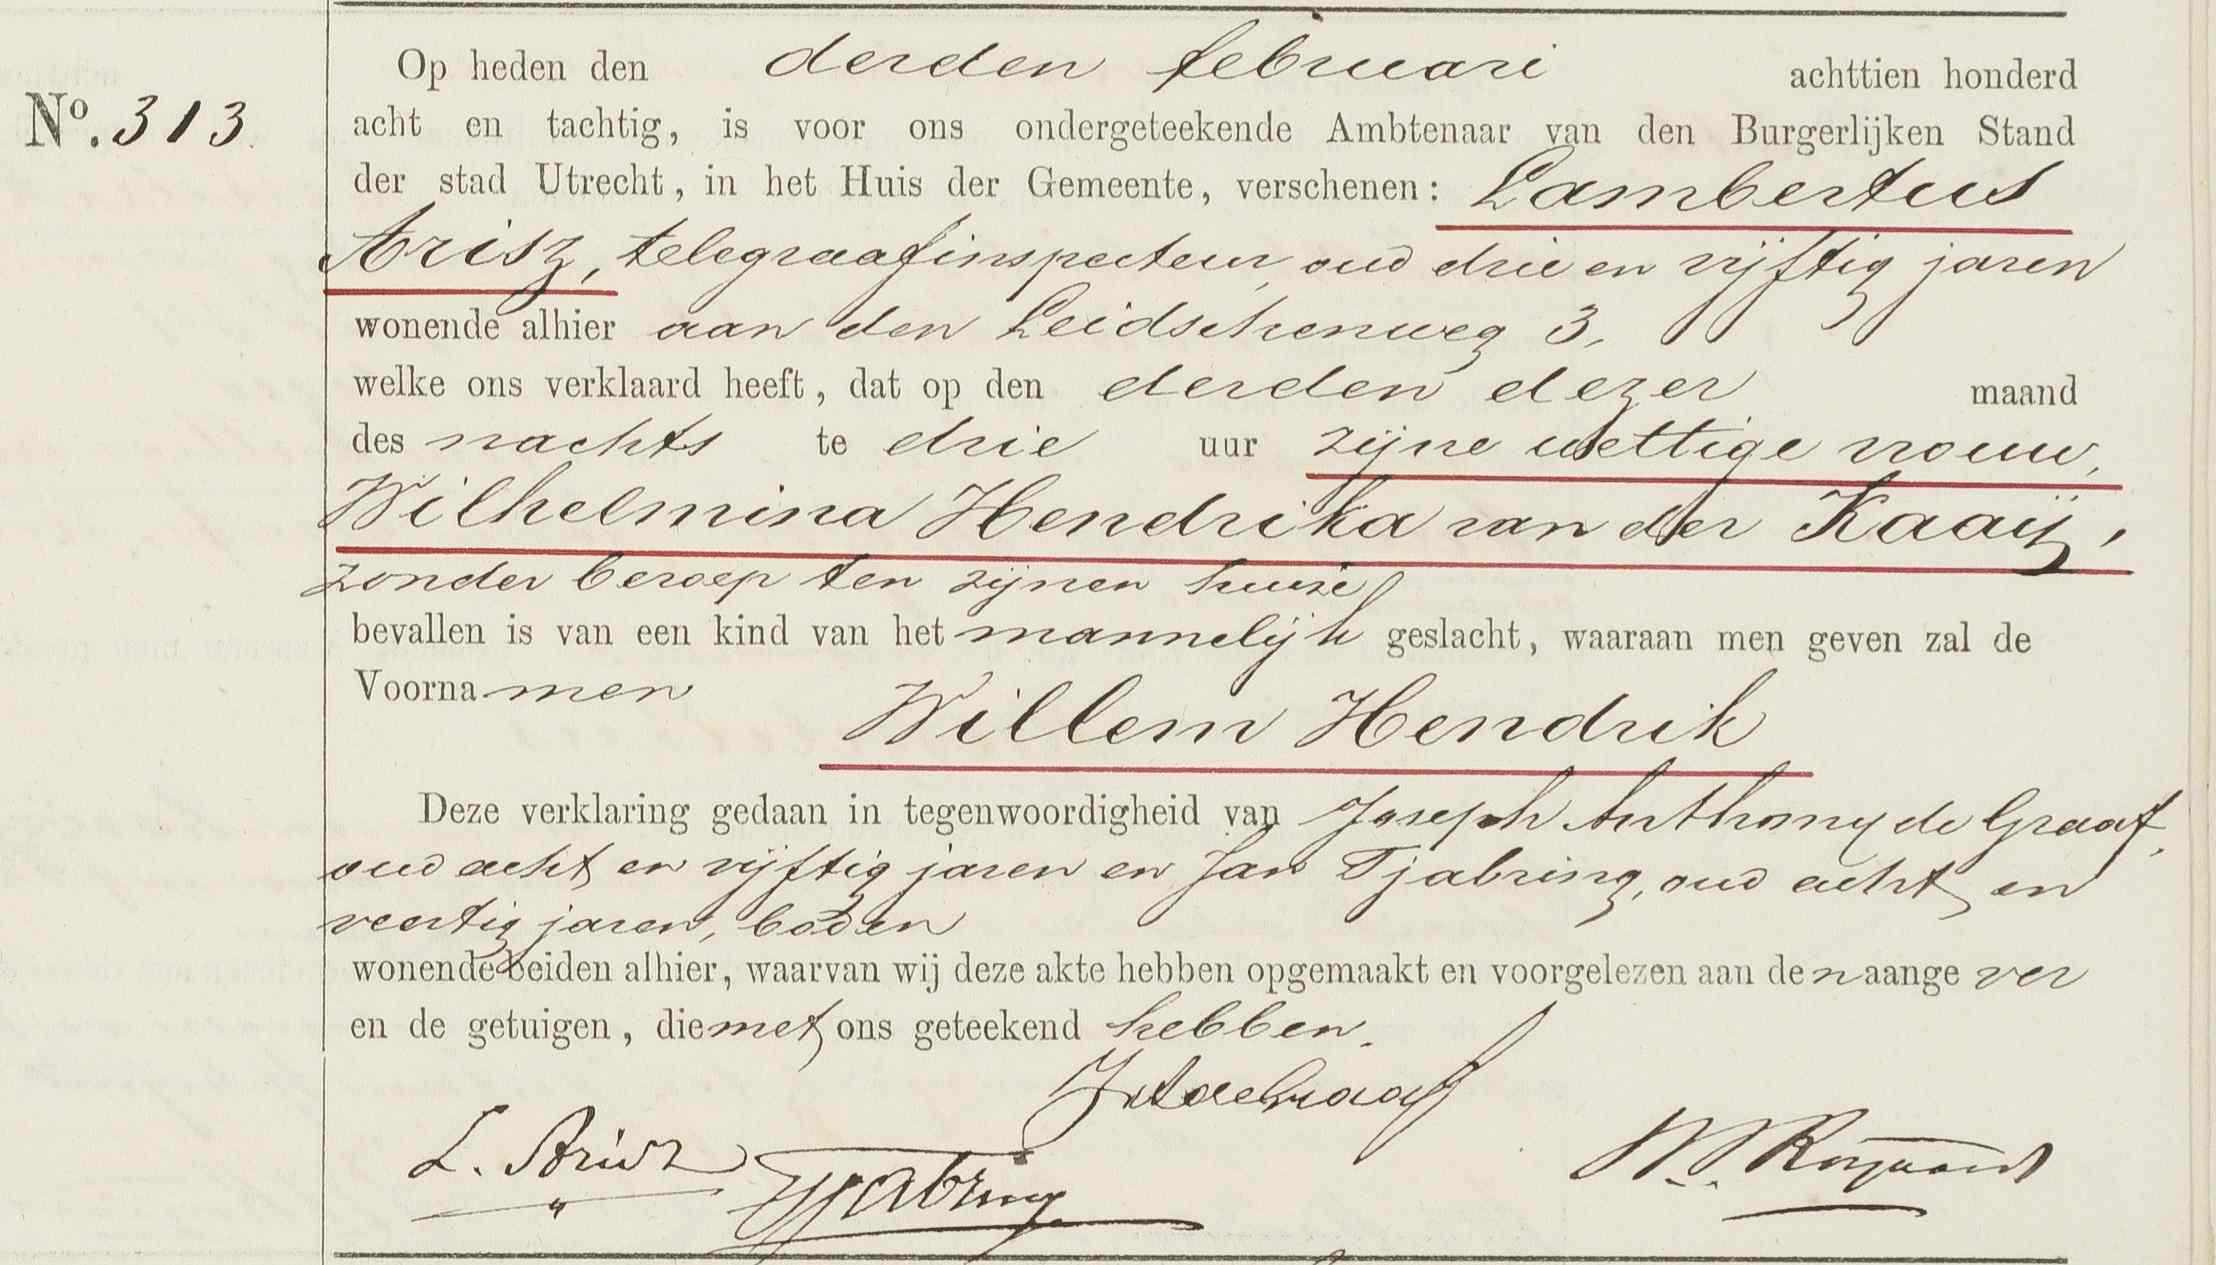 Op heden den derden februari achttien honderd
No. 313. acht en tachtig, is voor ons ondergeteekende Ambtenaar van den Burgerlijken Stand
der stad Utrecht, in het Huis der Gemeente, verschenen: Lambertus
Arisz, telegraafinspecteur, oud drie en vijftig jaren
wonende alhier aan den Leidschenweg 3,
welke ons verklaard heeft, dat op den derden dezer maand
des nachts te drie uur zijne wettige vrouw,
Wilhelmina Hendrika van der Kaaij,
zonder beroep ten zijnen huize
bevallen is van een kind van het mannelijk geslacht, waaraan men geven zal de
Voornamen Willem Hendrik
Deze verklaring gedaan in tegenwoordigheid van Joseph Anthony de Graaf,
oud acht en vijftig jaren en Jan Tjabring, oud acht en
veertig jaren, boden
wonende beiden alhier, waarvan wij deze akte hebben opgemaakt en voorgelezen aan den aangever
en de getuigen, die met ons geteekend hebben.
JAdeGraaf
L. Arisz Tjabring